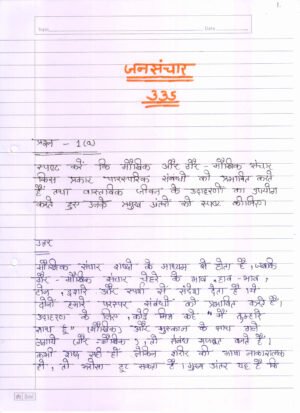 1.
Topic
Date
जनसंचार
335
प्रश्न - 1 (a)
स्पष्ट करें कि मौखिक और गैर-मौखिक संचार
किस प्रकार पारस्परिक संबंधों को प्रभावित करते
हैं तथा वास्तविक जीवन के उदाहरणों का उपयोग
करते हुए उनके प्रमुख अंतरों को स्पष्ट कीजिए।
उत्तर
मौखिक संचार शब्दों के माध्यम से होता है, जबकि
गैर-मौखिक संचार चेहरे के भाव, हाव-भाव,
टोन, इशारे और स्पर्श से संदेश देता है। ये
दोनों हमारे परस्पर संबंधों को प्रभावित करते हैं।
उदाहरण के लिए, कोई मित्र कहे "मैं तुम्हारे
साथ हूं" (मौखिक) और मुस्कान के साथ गले
लगाये (गैर-मौखिक), तो संबंध मजबूत बनते हैं।
कभी शब्द सही हों लेकिन शरीर की भाषा नाकारात्मक
हो, तो भरोसा टूट सकता है। मुख्य अंतर यह है कि